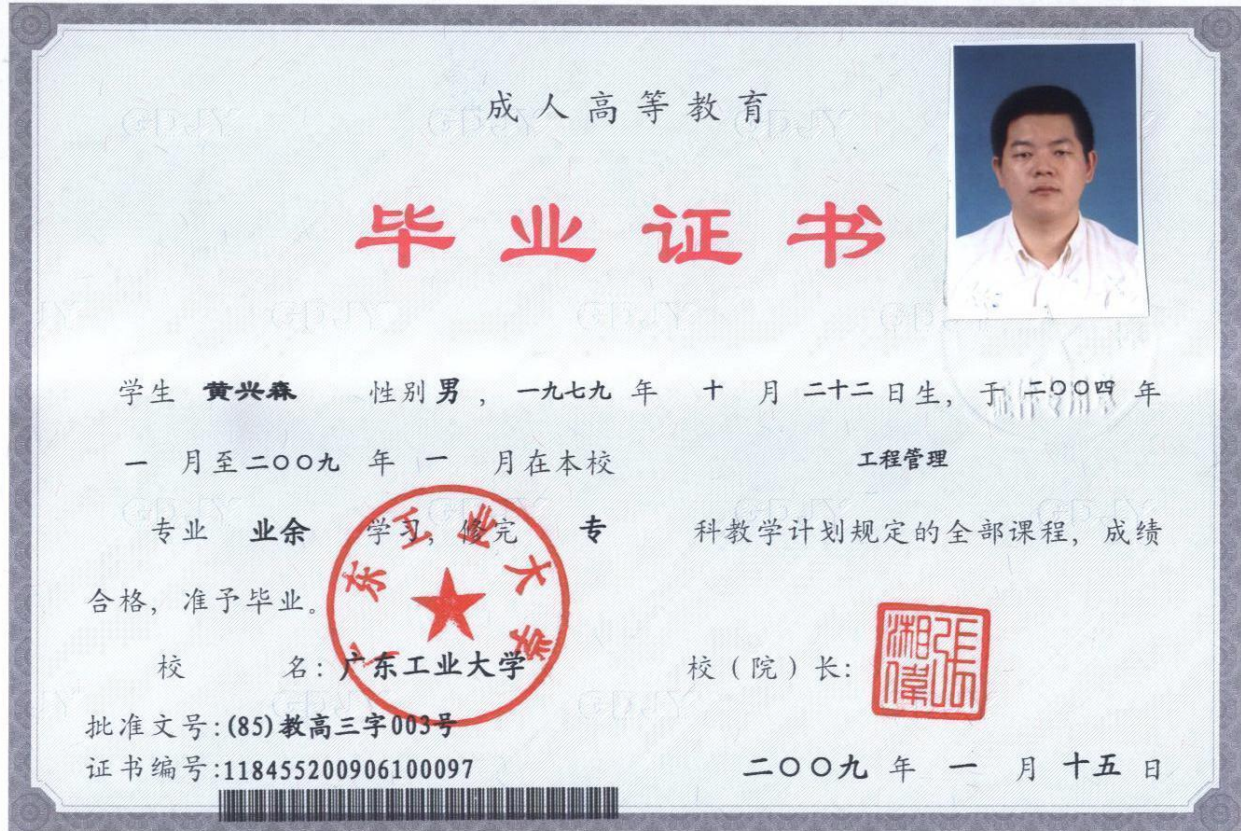 成人高等教育
毕业证书
学生 黄兴森 性别 男 , 一九七九 年 十 月 二十二 日生, 于 二〇〇四 年
一 月至 二〇〇九 年 一 月在本校 工程管理
专业 业余 学习, 修完 专 科教学计划规定的全部课程, 成绩
合格, 准予毕业。
广东工业大学
校 名: 广东工业大学 校(院)长: 張湘偉
批准文号: (85)教高三字003号
证书编号: 118455200906100097 二〇〇九 年 一 月 十五 日